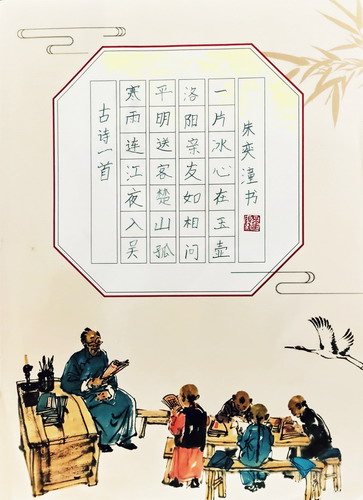 古诗一首
寒雨连江夜入吴
平明送客楚山孤
洛阳亲友如相问
一片冰心在玉壶
朱奕潼书